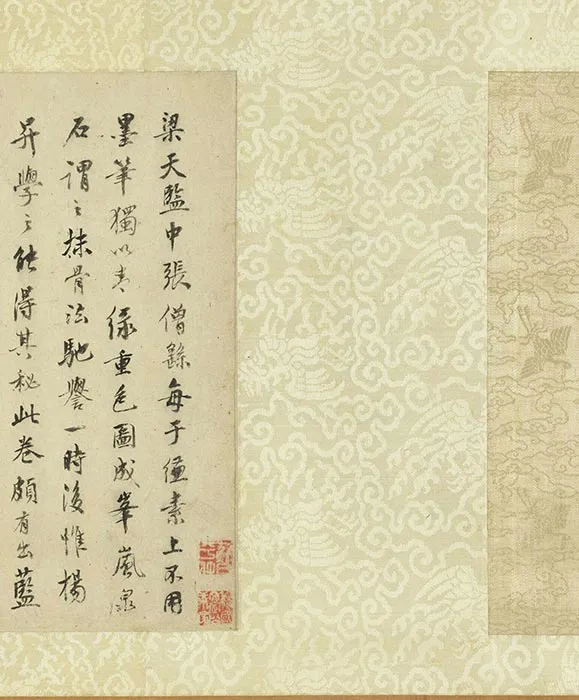 梁天監中張僧繇每于縑素上不用
墨筆獨以青綠重色圖成峯嵐泉
石謂之抹骨法馳譽一時後惟楊
昇學之能得其秘此卷頗有出藍